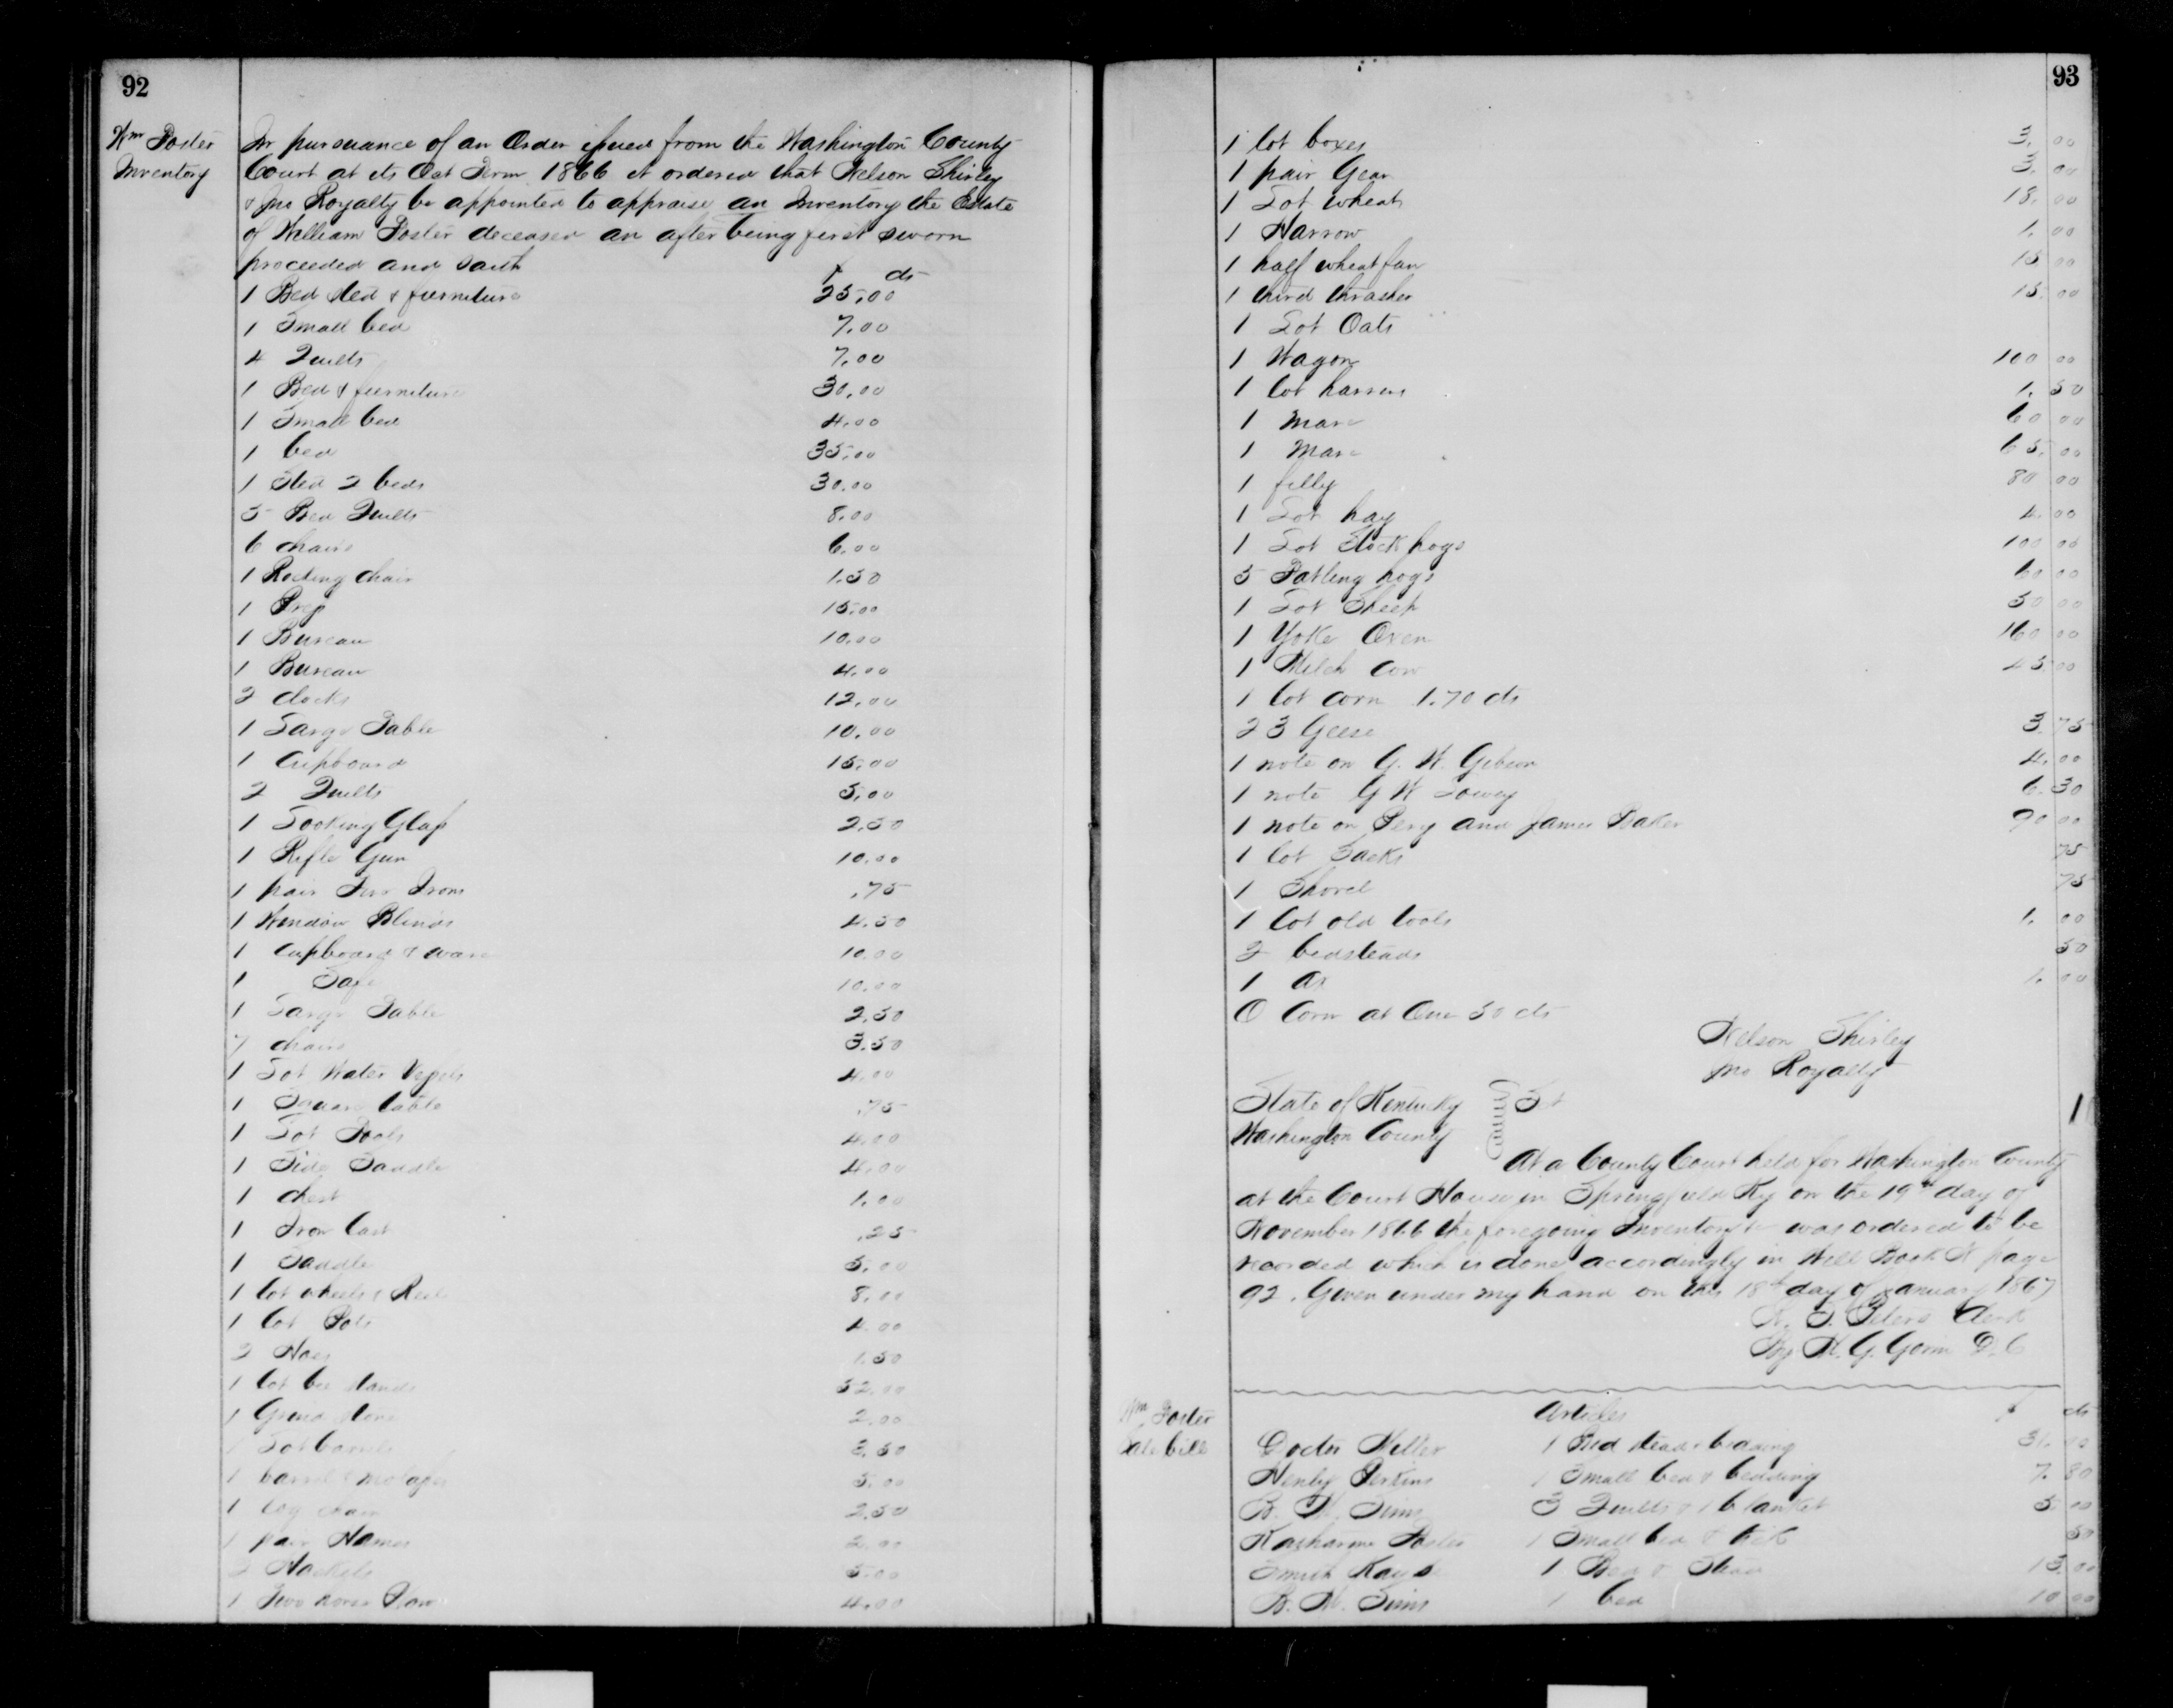 92
Wm Foster
Inventory
In pursuance of an Order issued from the Washington County
Court at its Oct Term 1866 it ordered that Nelson Shirley
& Jno Royalty be appointed to appraise an Inventory the Estate
of William Foster deceased an after being first sworn
proceeded and saith
$ cts
1 Bed sted & furniture 25,00
1 Small bed 7.00
4 Quilts 7.00
1 Bed & furniture 30,00
1 Small bed 4.00
1 bed 35,00
1 Sted 2 beds 30.00
5 Bed Quilts 8.00
6 chairs 6.00
1 Rocking chair 1.50
1 Press 15.00
1 Bureau 10.00
1 Bureau 4.00
2 clocks 12.00
1 Large Table 10.00
1 Cupboard 15,00
2 Quilts 5,00
1 Looking Glass 2.50
1 Rifle Gun 10.00
1 pair Fire Irons .75
1 Window Blinds 4.50
1 Cupboard & ware 10.00
1 Safe 10.00
1 Large Table 2.50
7 chairs 3.50
1 Lot Water Vessels 4.00
1 Square table .75
1 Lot Tools 4.00
1 Side Saddle 4.00
1 chest 1.00
1 Iron Cast .25
1 Saddle 5.00
1 lot wheels & Reel 8.00
1 lot Pots 4.00
2 Hoes 1.50
1 lot bee stands 52.00
1 Grind stone 2.00
1 Lot barrels 3.50
1 barrel & molasses 5.00
1 log chain 2.50
1 pair Hames 2.00
2 Hackels 5.00
1 Two horse Plow 4.00
93
1 lot boxes 3.00
1 pair Gear 3.00
1 Lot wheat 18.00
1 Harrow 1.00
1 half wheat fan 15.00
1 third thrasher 15.00
1 Lot Oats
1 Wagon 100 00
1 lot harness 1.50
1 Mare 60 00
1 Mare 65.00
1 filly 80 00
1 Lot hay 4.00
1 Lot Stock hogs 100 00
5 Fatling hogs 60 00
1 Lot Sheep 50 00
1 Yoke Oxen 160 00
1 Milch Cow 45 00
1 lot corn 1.70 cts
23 Geese 3.75
1 note on G. W. Gibson 4.00
1 note G W Lowry 6.30
1 note on Pery and James Baker 90 00
1 lot Sacks 75
1 Shovel 75
1 lot old tools 1.00
2 bedsteads 50
1 ax 1.00
O Corn at One 50 cts
Nelson Shirley
Jno Royalty
State of Kentucky
Washington County Sct
At a County Court held for Washington County
at the Court House in Springfield Ky on the 19th day of
November 1866 the foregoing Inventory &c was ordered to be
recorded which is done accordingly in Will Book page
92. Given under my hand on this 18th day of January 1867
Peters Clerk
By D. C
Wm Foster
Sale bill
Articles $ cts
Doctor 1 Bed stead & bedding 31.00
Henly Perkins 1 Small bed & bedding 7.80
B. Sims 3 Quilts & 1 blanket 5 00
Katharine Foster 1 Small bed & tick 50
Smith Kays 1 Bed & Stead 13.00
B. Sims 1 bed 10 00